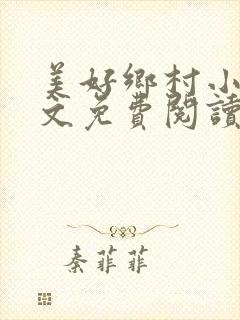 美好鄉村小
文免費閱讀
秦菲菲